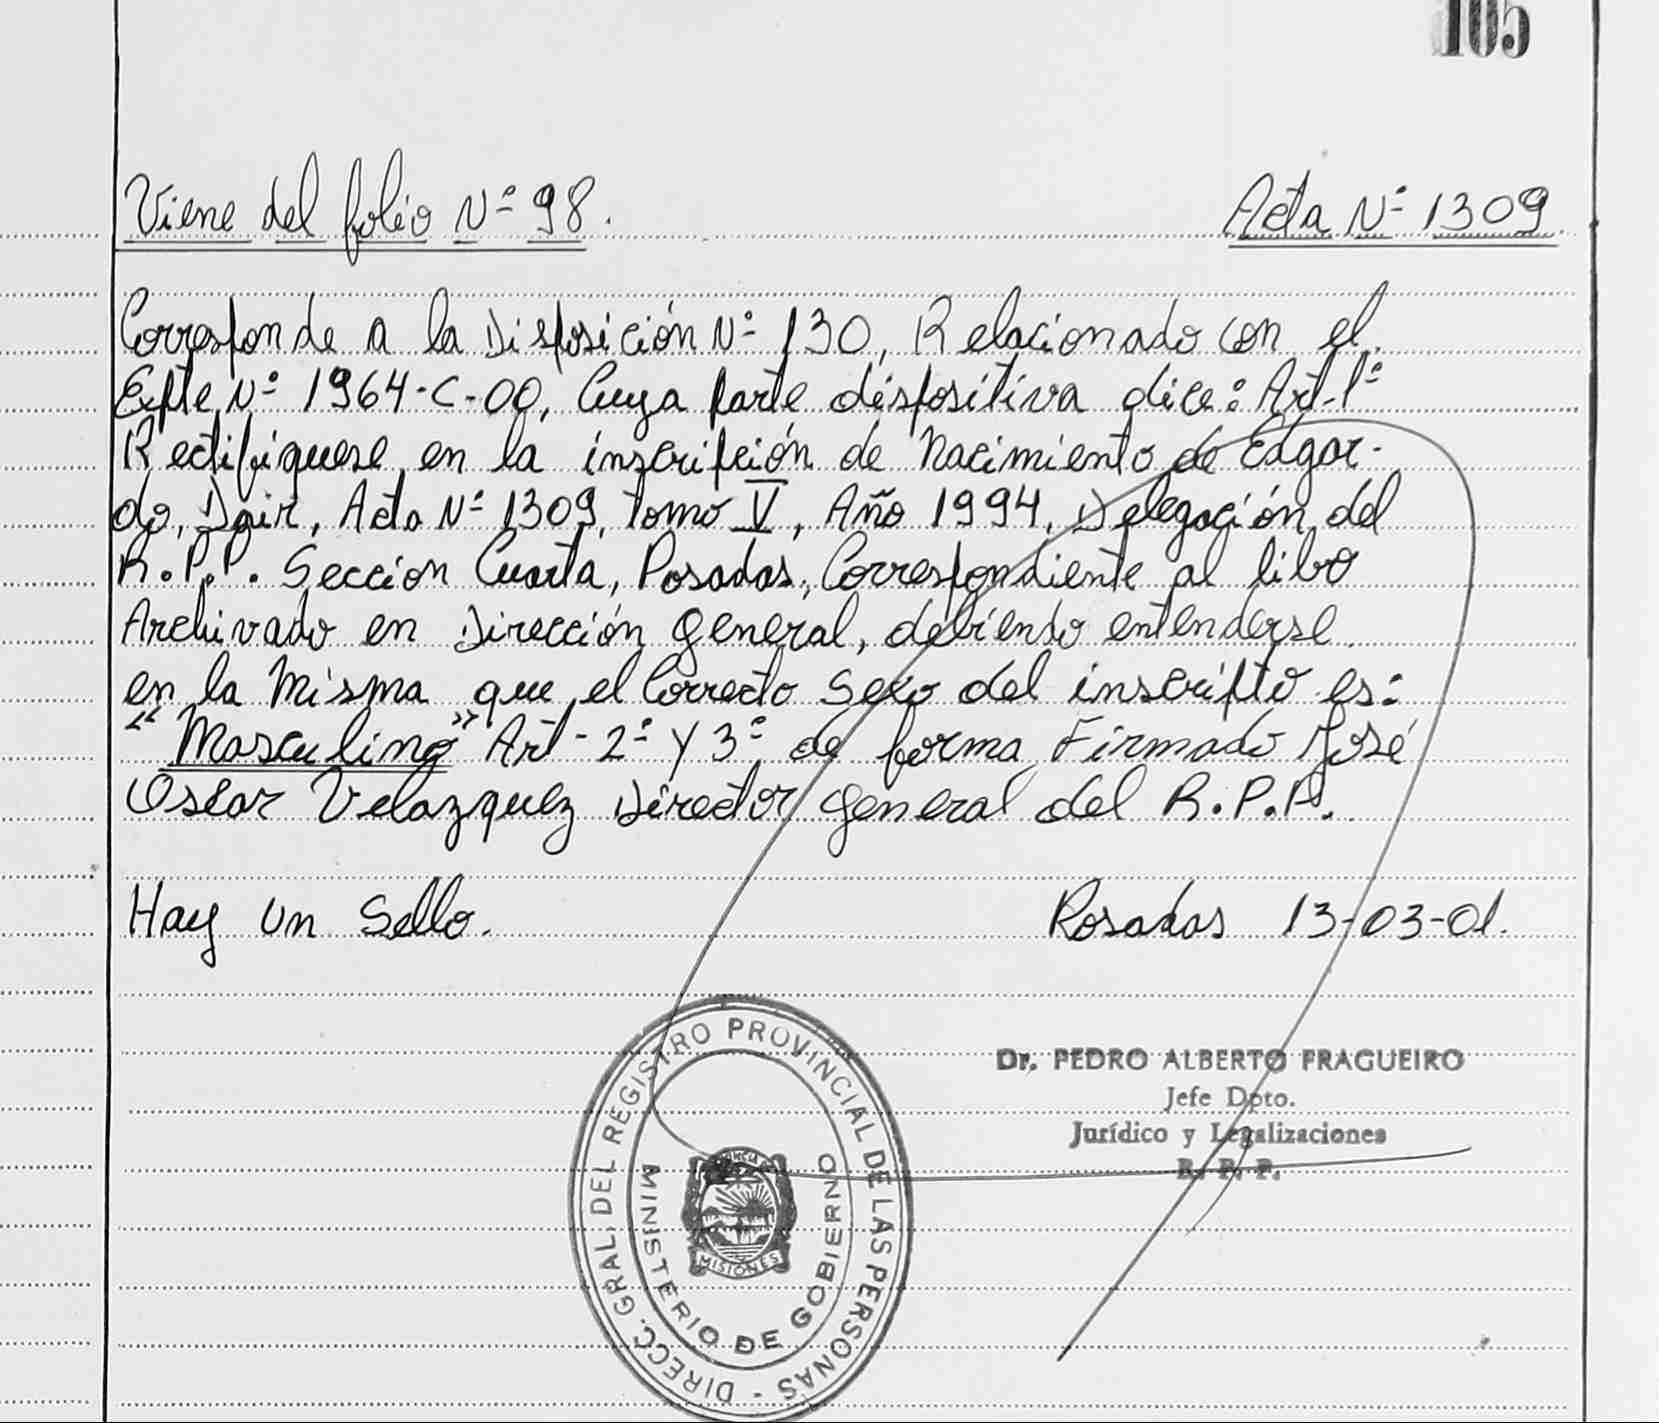 105
Viene del folio Nº 98.
Acta Nº 1309
Corresponde a la Disposición Nº 130, Relacionado con el
Expte Nº 1964-C-00, Cuya parte dispositiva dice: Art-1º
Rectifiquese en la inscripción de Nacimiento de Edgar-
do, Dair, Acta Nº 1309, Tomo V, Año 1994, Delegación del
R.P.P. Sección Cuarta, Posadas, Correspondiente al libo
Archivado en Dirección General, debiendo entenderse
en la Misma que el Correcto Sexo del inscripto es:
"Masculino" Art-2º Y 3º de forma Firmado José
Oscar Velazquez Director General del R.P.P.
Hay Un Sello.
Posadas 13-03-01.
DIRECC. GRAL. DEL REGISTRO PROVINCIAL DE LAS PERSONAS -
MINISTERIO DE GOBIERNO
MISIONES
Dr. PEDRO ALBERTO FRAGUEIRO
Jefe Dpto.
Jurídico y Legalizaciones
R. P. P.